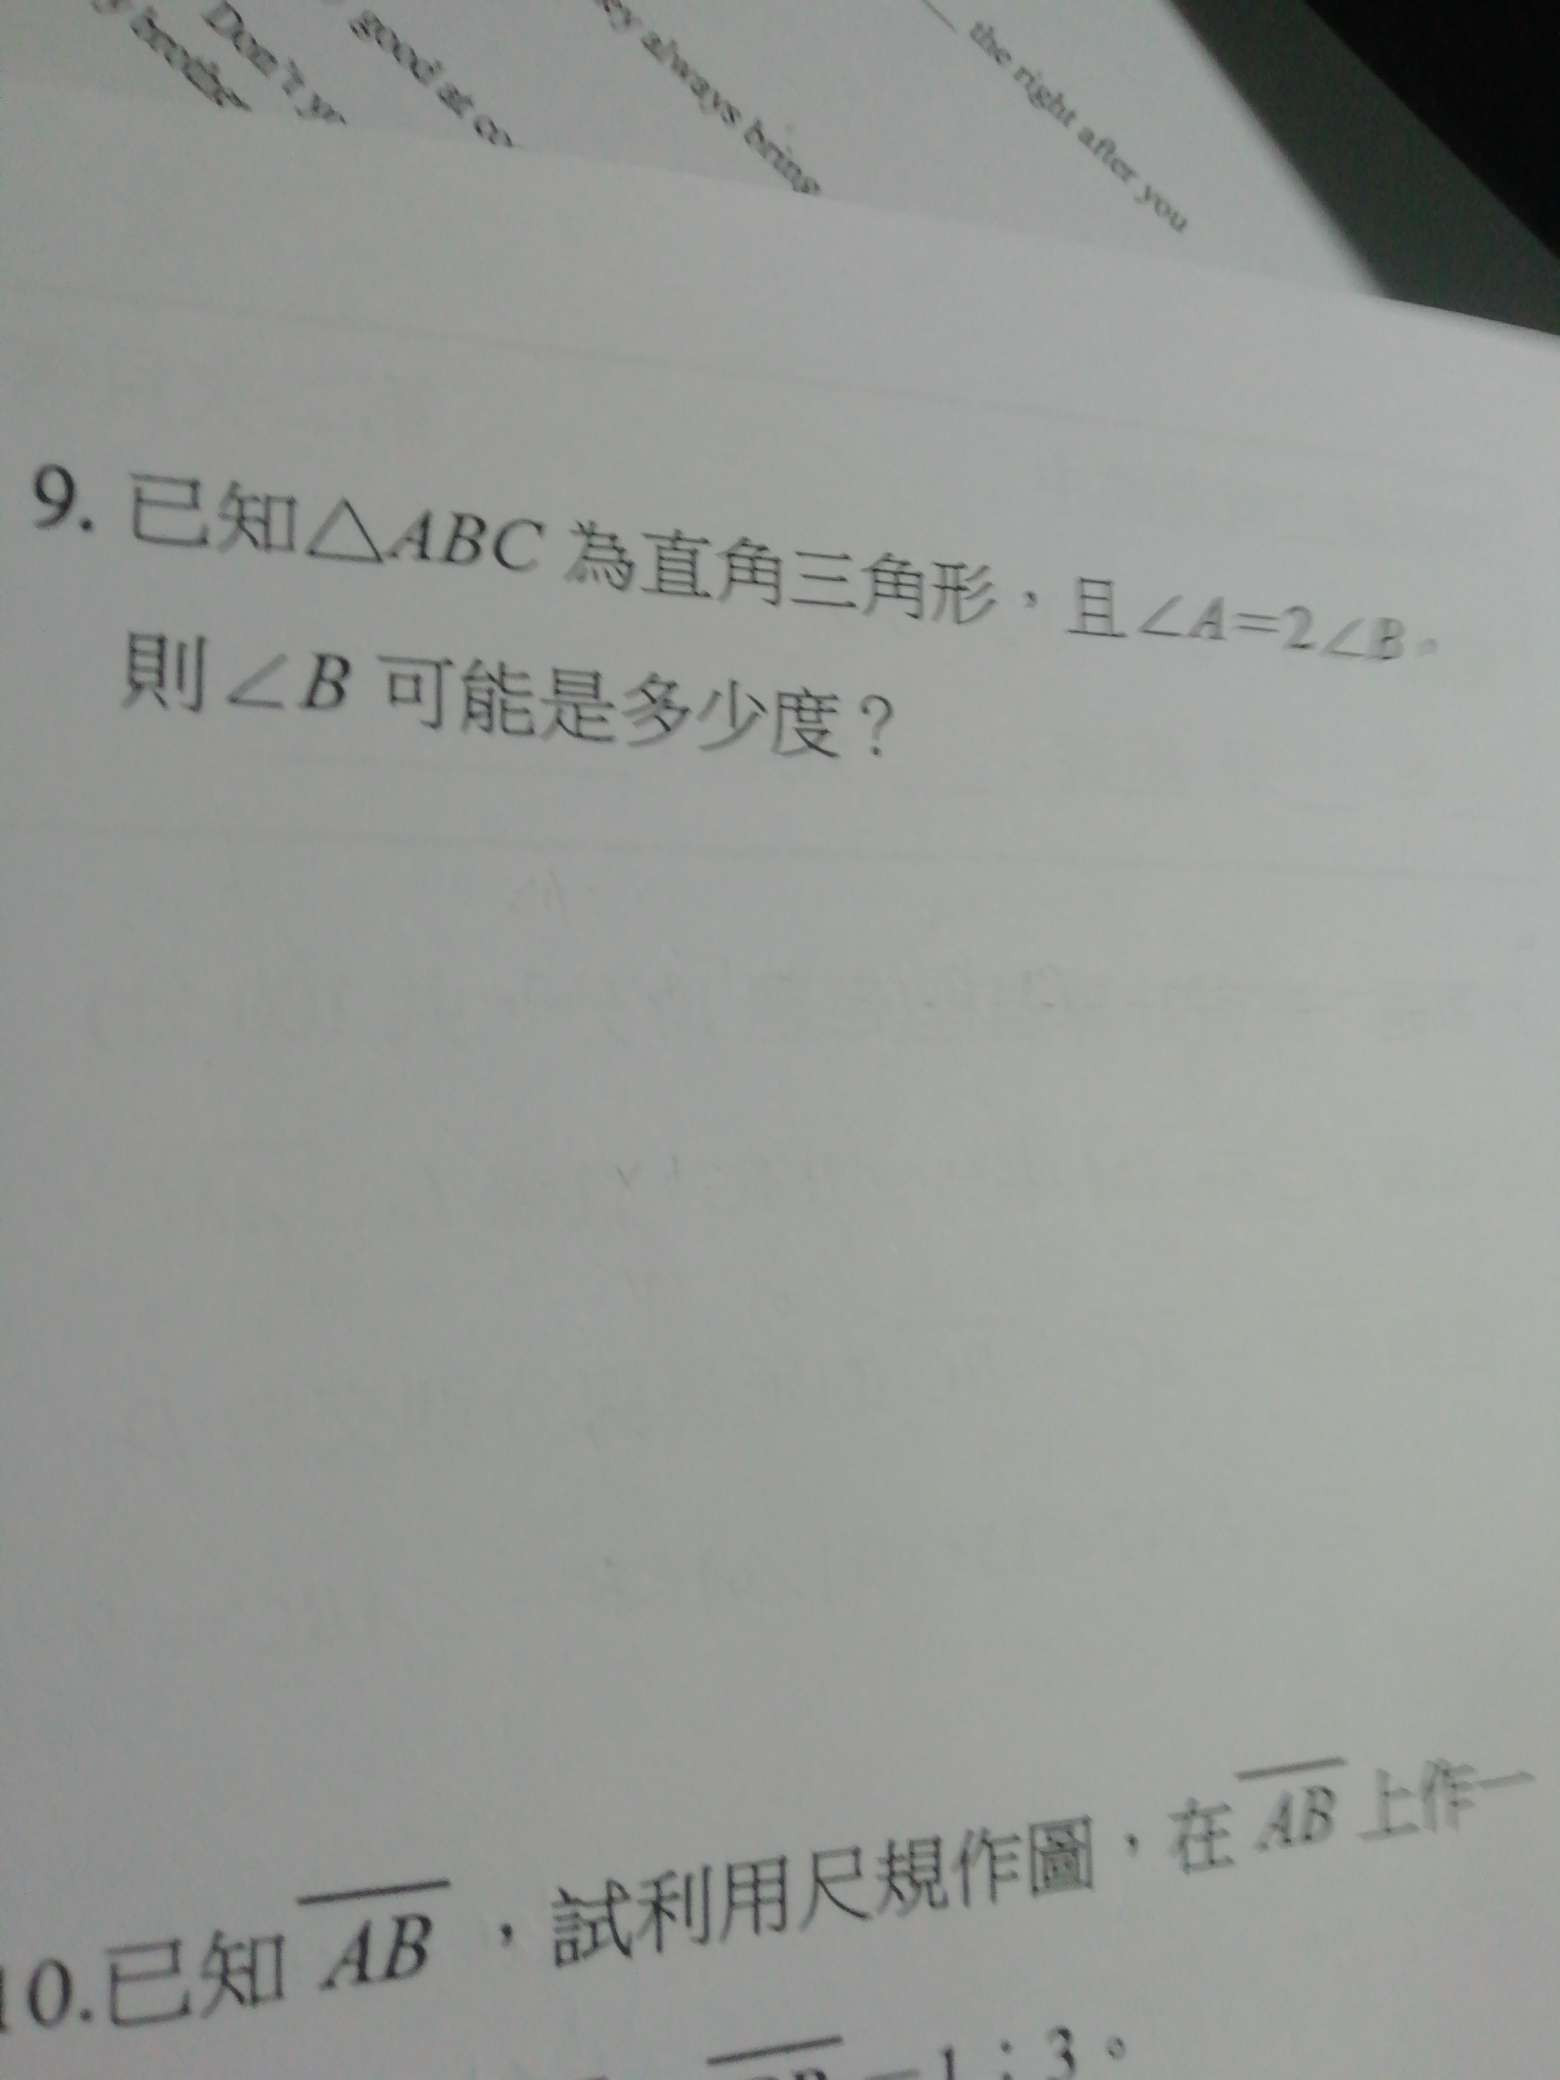 the right after you
always bring
good at
Don't
9. 已知△ABC 為直角三角形，且∠A=2∠B。
則∠B 可能是多少度？
10.已知 AB ，試利用尺規作圖，在 AB 上作一
1：3。